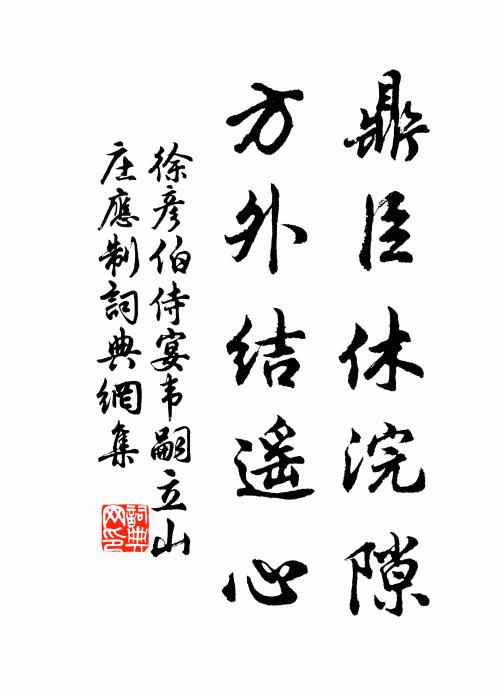 鼎臣休浣隙
方外结遥心
徐彦伯侍宴韦嗣立山
庄應制詞典網集
詞典网印